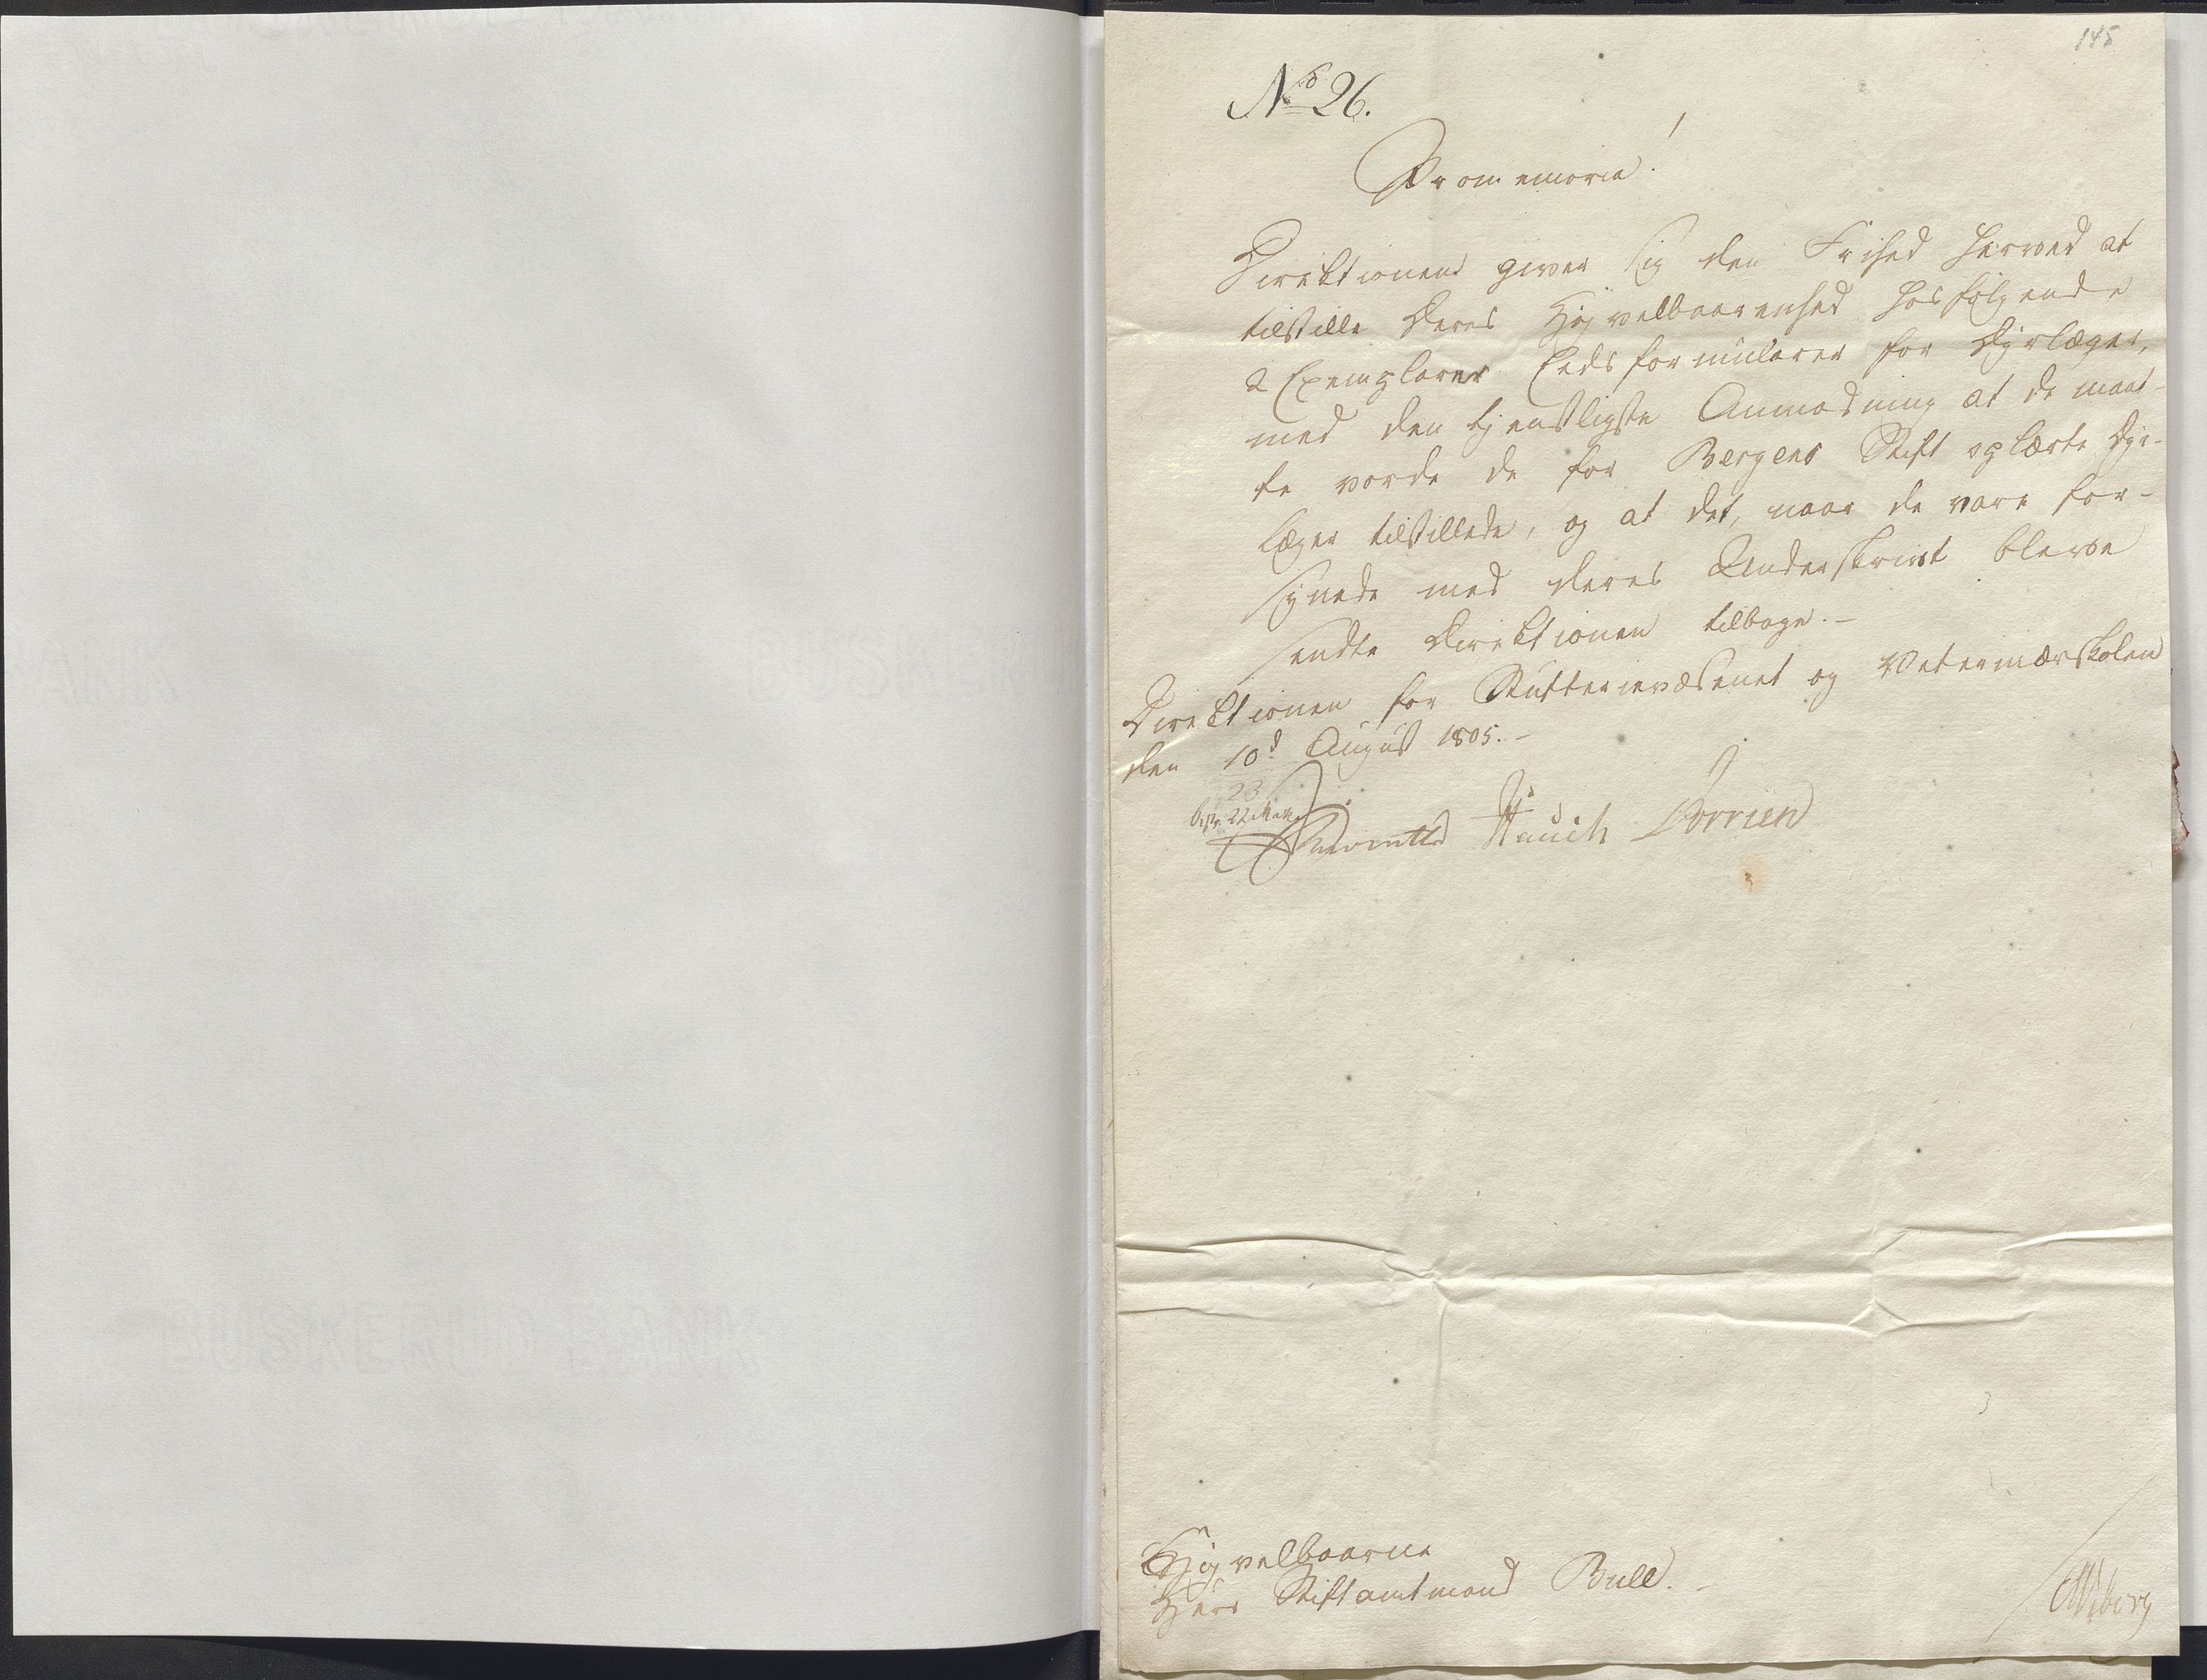 145
No 26.
Promemoria!
Direktionen giver sig den Frihed herved at
tilstille Deres Højvelbaarenhed hosfølgende
2 Exemplarer Eedsformularer for Dyrlæger,
med den tjenstligste Anmodning at de maat-
te vorde de for Bergens Stift oplærte Dyr-
læger tilstillede, og at det, naar de vare for-
synede med deres Underskrivt bleve
sendte Direktionen tilbage.-
Direktionen for Stutterievæsenet og Veterinærskolen
den 10d August 1805.-
23
Hauch
Høj velbaarne
Herr Stiftamtmand Bull.-
Viborg
BUSKERUD BANK